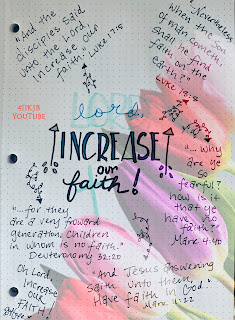 "And the
disciples Said
unto the Lord,
Increase our
faith." Luke 17:5
"Nevertheless
When the Son
of man cometh,
Shall he find
faith on the
earth?"
Luke 18:8
411KJB
YOUTUBE
lord,
INCREASE
our
faith!
"... why
are ye
so
fearful?
how is it
that ye
have no
faith?"
Mark 4:40
"...for they
are a very froward
generation, Children
in whom is no faith."
Deuteronomy 32:20
Oh Lord,
Increase
our
FAITH!
"And Jesus answering
saith unto them,
Have faith in God."
Mark 11:22